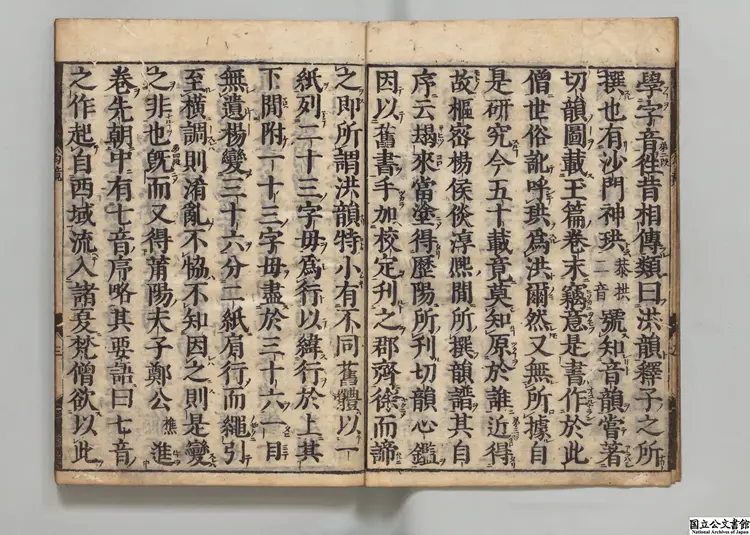 學字音徃昔相傳類曰洪韻釋子之所
撰也有沙門神珙恭拱二音號知音韻嘗著
切韻圖載王篇卷末竊意是書作於此
僧世俗訛呼珙爲洪爾然又無所據自
是研究今五十載竟莫知原於誰近得
故樞密楊侯倓淳熈閒所撰韻譜其自
序云朅來當塗得歷陽所刊切韻心鑑
因以舊書手加校定刊之郡齊徐而諦
之即所謂洪韻特小有不同舊體以一
紙列二十三字母爲行以緯行於上其
下閒附一十三字母盡於三十六一目
無遺楊變三十六分二紙肩行而繩引
至橫調則淆亂不恊不知因之則是變
之非也旣而又得莆陽夫子鄭公樵進
卷先朝中有七音序略其要語曰七音
之作起自西域流入諸夏梵僧欲以此
国立公文書館
National Archives of Japan